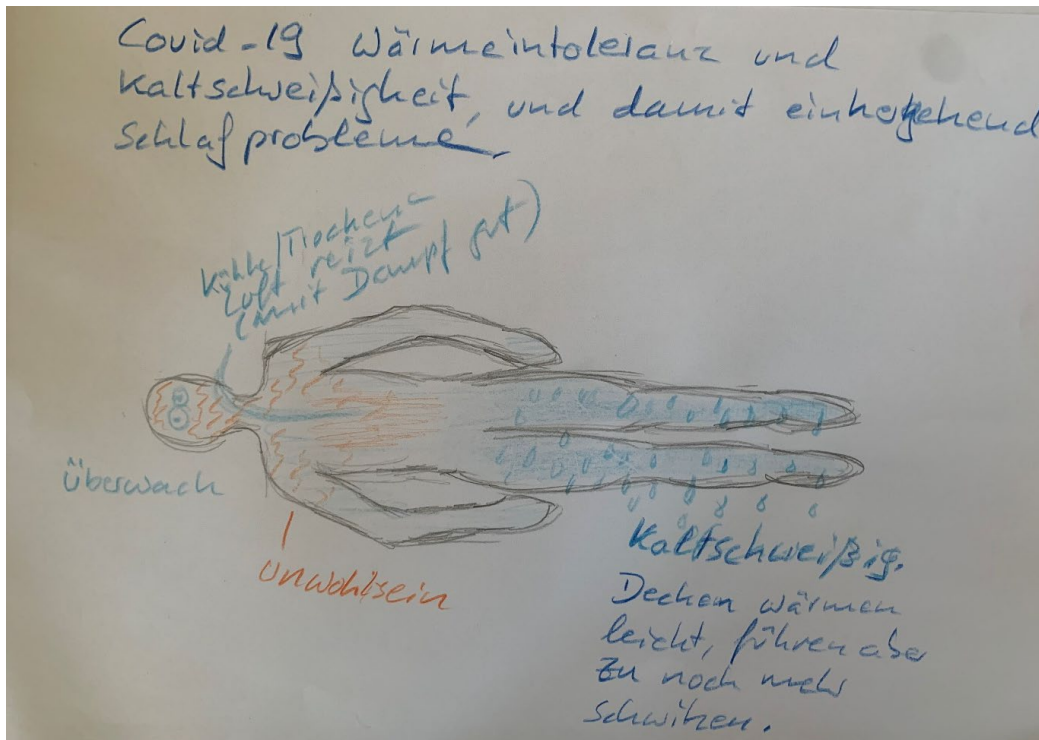 Covid-19 Wärmeintoleranz und
Kaltschweißigkeit, und damit einhergehend
Schlafprobleme.
Kühle/Trockene
Luft reizt
(damit Dampf gut)
überwach
Unwohlsein
Kaltschweißig.
Decken wärmen
leicht, führen aber
zu noch mehr
Schwitzen.